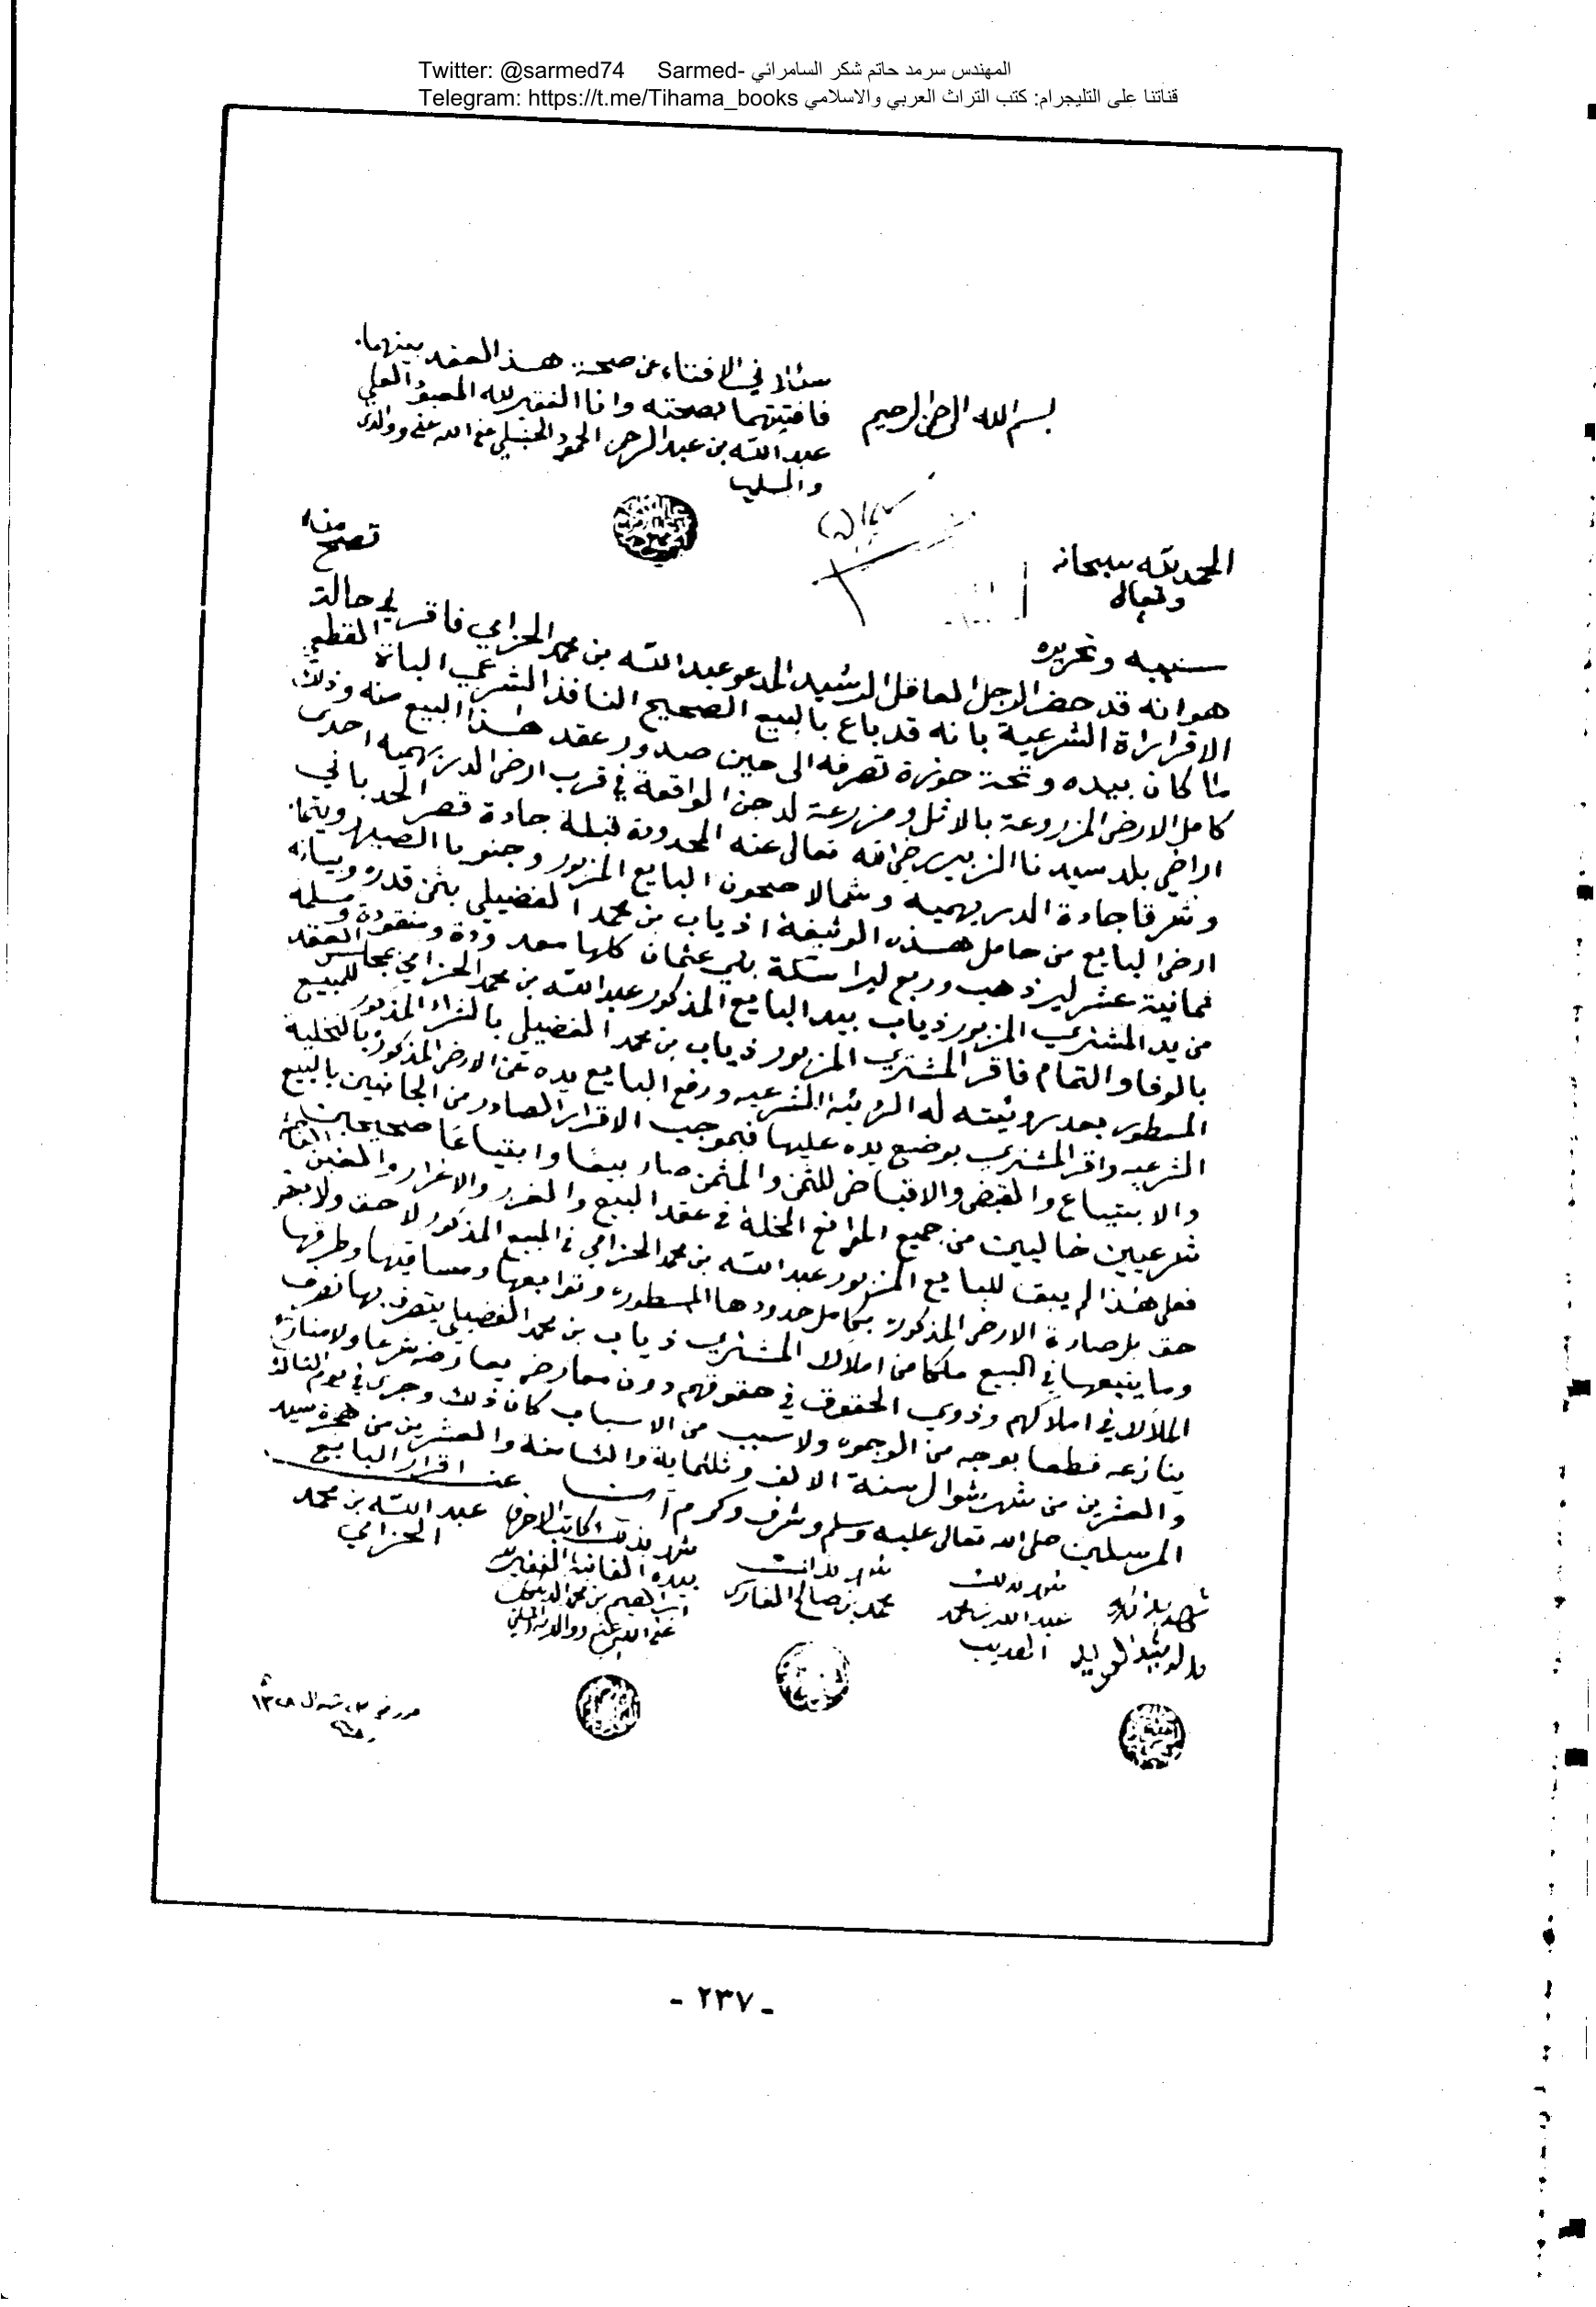 Twitter: @sarmed74 Sarmed- المهندس سرمد حاتم شكر السامرائي
Telegram: https://t.me/Tihama_books قناتنا على التليجرام: كتب التراث العربي والاسلامي
بسم الله الرحمن الرحيم
سئلا في الافتاء عن صحة هذا العقد بينهما.
فافتيتهما بصحته وانا الفقير لله المعبود العلي
عبد الله بن عبد الرحمن الحمود الحنبلي عفى الله عنه ووالديه
والمسلمين
الحمد لله سبحانه
وتعالى
تصح منه
تحريره
هو انه قد حضر الرجل العاقل الرشيد المدعو عبد الله بن محمد الحزامي فاقر في حالة
الاقراراة الشرعية بانه قد باع بالبيع الصحيح النافذ الشرعي البات القطعي
ما كان بيده وتحت حوزة تصرفه الى حين صدور عقد هذا البيع منه وذلك
كامل الارض المزروعة بالاثل ومزرعة لدجن الواقعة في قرب ارض الدريهمية احدى
اراضي بلد سيدنا الزبير رضي الله تعالى عنه المحدودة قبلة جادة قصر
وشرقا جادة الدريهمية وشمالا صحون البايع المزبور وجنوبا
ارض البايع من حامل هذه الوثيقة ذياب بن محمد الفضيلي بثمن قدره وبيانه
ثمانية عشر لير ذهب وربع ليرا سكة بني عثمان كلها معدودة ومنقودة ومسلمة
من يد المشتري المزبور ذياب بيد البايع المذكور عبد الله بن محمد الحزامي بمجلس العقد
بالوفا والتمام فاقر المشتري المزبور ذياب بن محمد الفضيلي بالشراء المذكور للمبيع
المسطور بعد رؤيته له الرؤية الشرعيه ورفع البايع يده عن الارض المذكورة بالتخلية
الشرعيه واقر المشتري بوضع يده عليها فبموجب الاقرار الصادر من الجانبين بالبيع
والابتياع والقبض والاقباض للثمن والمثمن صار بيعا وابتياعا صحيحين
شرعيين خاليين من جميع الموانع المخلة في عقد البيع والغرر والاغرار والغبن
فعلى هذا لم يبق للبايع المزبور عبد الله بن محمد الحزامي في المبيع المذكور لا حق ولا بعض
حق بل صارة الارض المذكورة بكامل حدودها المسطورة وتوابعها ومساقيها وطرقها
وما يتبعها في البيع ملكا من املاك المشتري ذياب بن محمد الفضيلي يتصرف بها تصرف
الملاك في املاكهم وذوي الحقوق في حقوقهم دون معارض يعارضه شرعا ولا منازع
ينازعه قطعا بوجه من الوجوه ولا سبب من الاسباب كان ذلك وجرى في يوم الثالث
والعشرين من شهر شوال سنة الالف وثلثماية والثامنة والعشرين من هجرة سيد
المرسلين صلى الله تعالى عليه وسلم وشرف وكرم آمين
عن اقرار البايع
عبد الله بن محمد
الحزامي
شهد بذلك
شهد بذلك
عبد الله بن محمد
شهد بذلك
محمد بن صالح
شهد بذلك كاتب الاحرف
بيده الفانية الفقير
- ٢٣٧ -